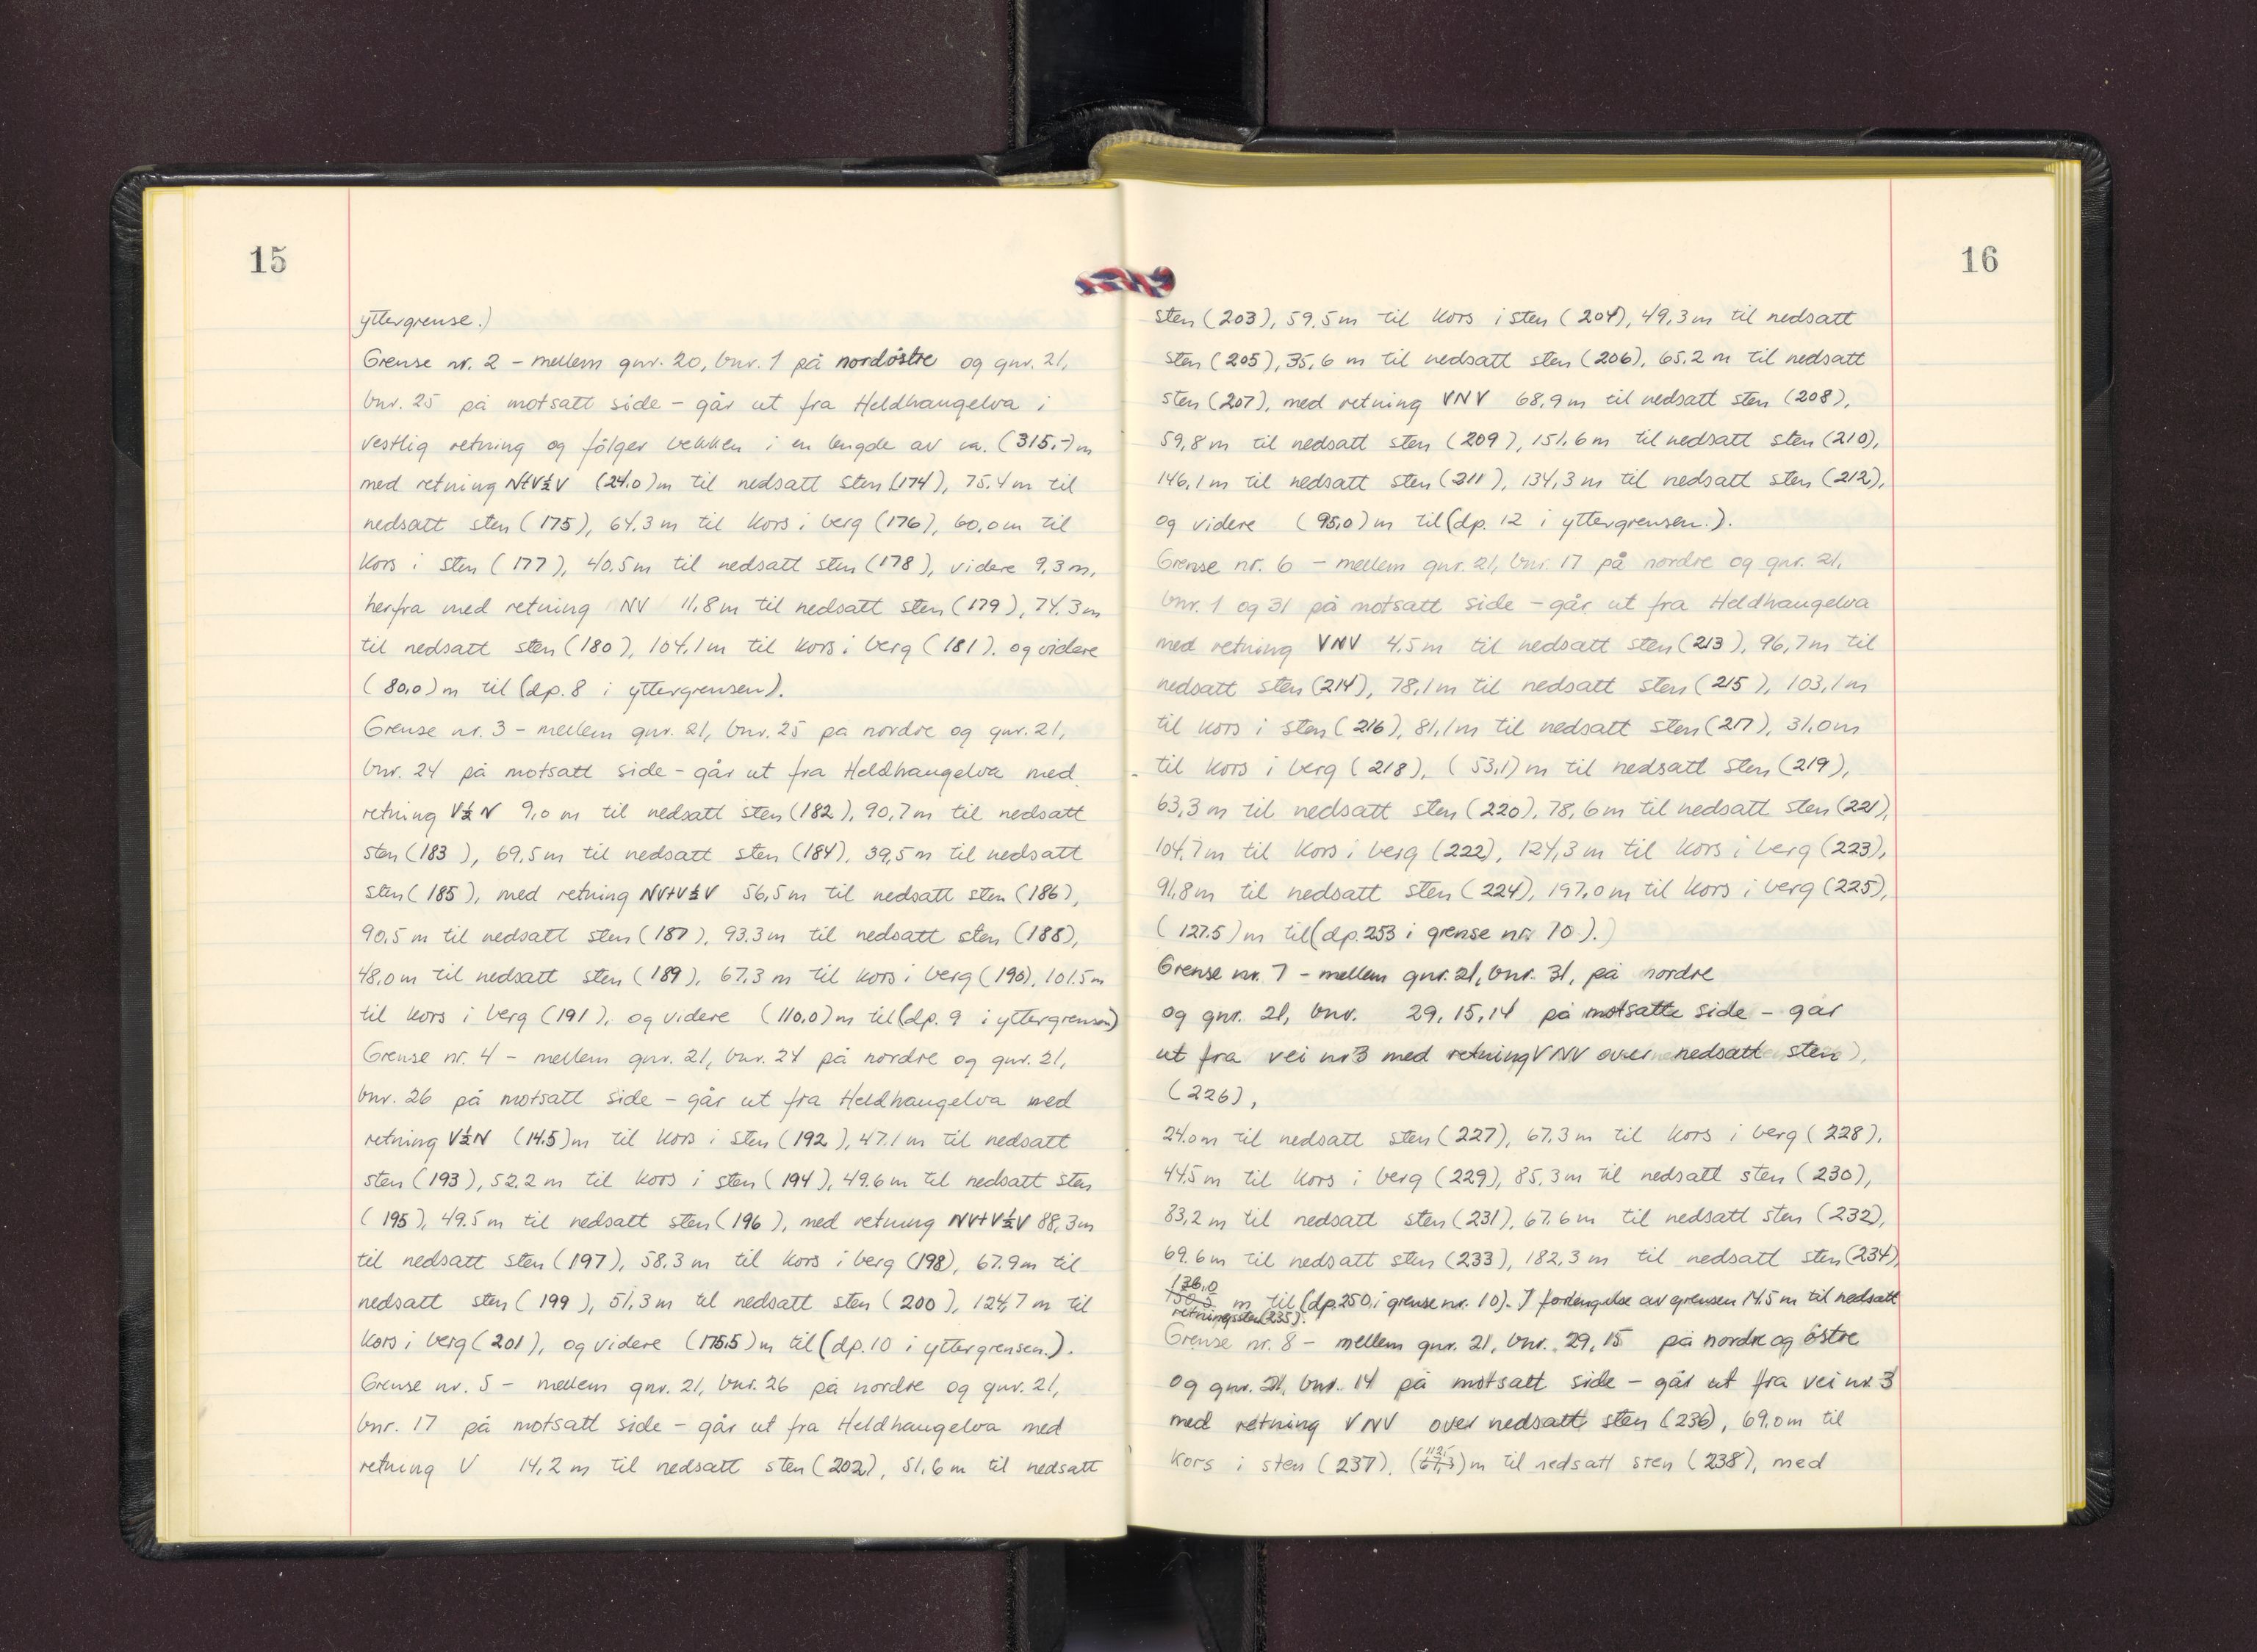 15
yttergrense.)
Grense nr. 2 - mellem gnr. 20, bnr. 1 på nordöstre og gnr. 21,
bnr. 25 på motsatt side - går ut fra Heldhaugelva i
vestlig retning og fölger bekken i en lengde av ca. (315,-)m
med retning NtV½V (24.0)m til nedsatt sten (174), 75.4m til
nedsatt sten (175), 64.3m til kors i berg (176), 60,0m til
kors i sten (177), 40.5m til nedsatt sten (178), videre 9.3m,
herfra med retning NV 11,8m til nedsatt sten (179), 74.3m
til nedsatt sten (180), 104,1m til kors i berg (181). og videre
(80,0)m til (dp. 8 i yttergrensen).
Grense nr. 3 - mellem gnr. 21, bnr. 25 på nordre og gnr. 21,
bnr. 24 på motsatt side - går ut fra Heldhaugelva med
retning V½N 9,0 m til nedsatt sten (182), 90,7m til nedsatt
sten (183), 69,5m til nedsatt sten (184), 39,5m til nedsatt
sten (185), med retning NVtV½V 56,5m til nedsatt sten (186),
90,5 m til nedsatt sten (187), 93.3m til nedsatt sten (188),
48,0m til nedsatt sten (189), 67.3 m til kors i berg (190), 101.5m
til kors i berg (191), og videre (110,0)m til (dp. 9 i yttergrensen)
Grense nr. 4 - mellem gnr. 21, bnr. 24 på nordre og gnr. 21,
bnr. 26 på motsatt side - går ut fra Heldhaugelva med
retning V½N (14.5)m til kors i sten (192), 47.1m til nedsatt
sten (193), 52.2 m til kors i sten (194), 49.6m til nedsatt sten
(195), 49.5 m til nedsatt sten (196), med retning NVtV½V 88,3m
til nedsatt sten (197), 58.3 m til kors i berg (198), 67.9m til
nedsatt sten (199), 51,3m til nedsatt sten (200), 124,7m til
kors i berg (201), og videre (175.5)m til (dp. 10 i yttergrensen.).
Grense nr. 5 - mellem gnr. 21, bnr. 26 på nordre og gnr. 21,
bnr. 17 på motsatt side - går ut fra Heldhaugelva med
retning V 14,2 m til nedsatt sten (202), 51,6m til nedsatt
16
sten (203), 59,5m til kors i sten (204), 49,3m til nedsatt
sten (205), 35,6 m til nedsatt sten (206), 65.2 m til nedsatt
sten (207), med retning VNV 68,9m til nedsatt sten (208),
59,8m til nedsatt sten (209), 151,6m til nedsatt sten (210),
146,1m til nedsatt sten (211), 134,3m til nedsatt sten (212),
og videre (95,0)m til (dp. 12 i yttergrensen.).
Grense nr. 6 - mellem gnr. 21, bnr. 17 på nordre og gnr. 21,
bnr. 1 og 31 på motsatt side - går ut fra Heldhaugelva
med retning VNV 4,5m til nedsatt sten (213), 96,7m til
nedsatt sten (214), 78,1m til nedsatt sten (215), 103,1m
til kors i sten (216), 81,1m til nedsatt sten (217), 31,0m
til kors i berg (218), (53,1)m til nedsatt sten (219),
63,3m til nedsatt sten (220), 78,6m til nedsatt sten (221),
104,7m til kors i berg (222), 124,3m til kors i berg (223),
91,8m til nedsatt sten (224), 197,0m til kors i berg (225),
(127.5)m til (dp. 253 i grense nr. 10.).)
Grense nr. 7 - mellem gnr. 21, bnr. 31, på nordre
og gnr. 21, bnr. 29, 15, 14 på motsatte side - går
ut fra vei nr 3 med retning VNV over nedsatt sten
(226),
24.0m til nedsatt sten (227), 67.3m til kors i berg (228),
44.5m til kors i berg (229), 85,3m til nedsatt sten (230),
83,2m til nedsatt sten (231), 67.6m til nedsatt sten (232),
69.6m til nedsatt sten (233), 182,3m til nedsatt sten (234),
136.0
m til (dp. 250, i grense nr. 10). I forlengelse av grensen 14.5 m til nedsatt
retningssten (235).
Grense nr. 8 - mellem gnr. 21, bnr. 29, 15 på nordre og östre
og gnr. 21, bnr. 14 på motsatt side - går ut fra vei nr. 3
med retning VNV over nedsatt sten (236), 69.0m til
kors i sten (237), (112,5)m til nedsatt sten (238), med